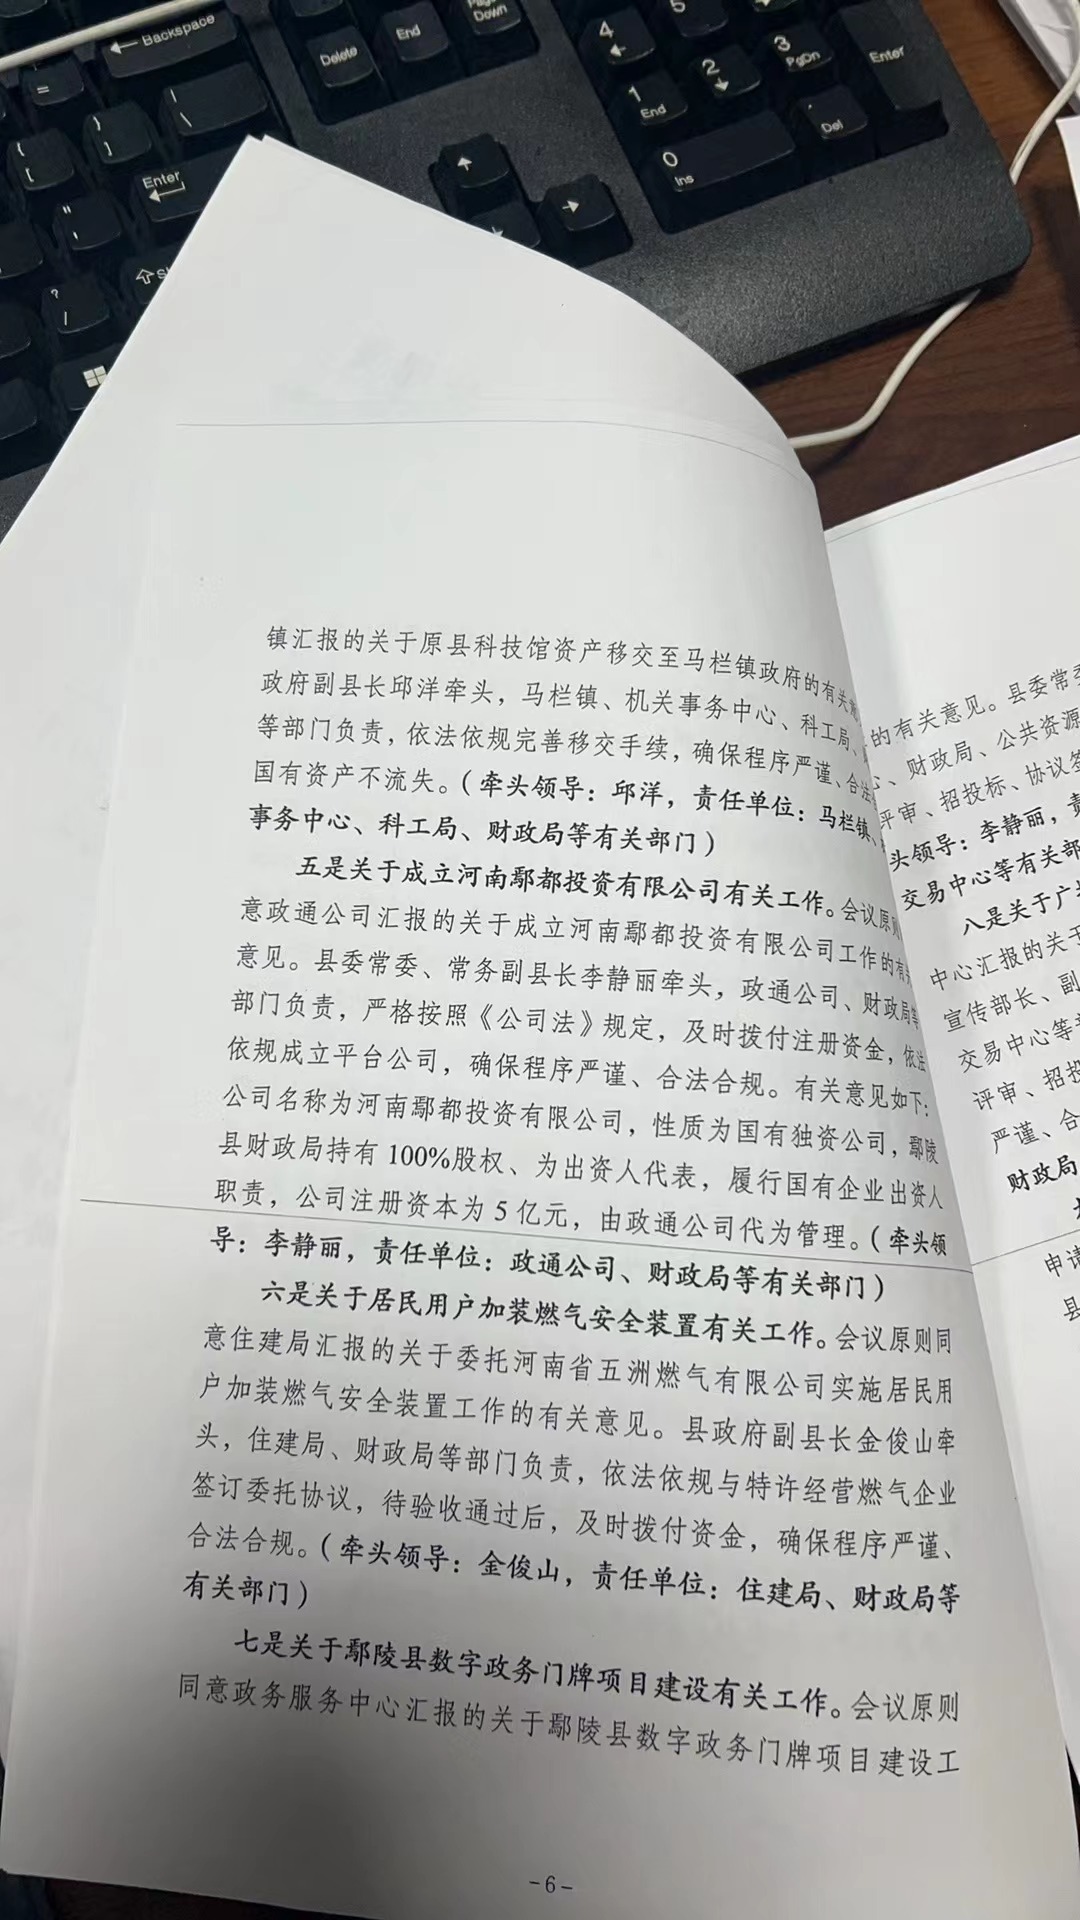 Backspace
Delete
End
Page
Down
4
5
Enter
=
|
\
}
]
{
[
1
End
2
3
PgDn
.
Del
0
Ins
Enter
"
'
?
/
镇汇报的关于原县科技馆资产移交至马栏镇政府的有关
政府副县长邱洋牵头，马栏镇、机关事务中心、科工局、
等部门负责，依法依规完善移交手续，确保程序严谨、合法
国有资产不流失。（牵头领导：邱洋，责任单位：马栏镇、
事务中心、科工局、财政局等有关部门）
五是关于成立河南鄢都投资有限公司有关工作。会议原则
意政通公司汇报的关于成立河南鄢都投资有限公司工作的有关
意见。县委常委、常务副县长李静丽牵头，政通公司、财政局等
部门负责，严格按照《公司法》规定，及时拨付注册资金，依法
依规成立平台公司，确保程序严谨、合法合规。有关意见如下：
公司名称为河南鄢都投资有限公司，性质为国有独资公司，鄢陵
县财政局持有100%股权、为出资人代表，履行国有企业出资人
职责，公司注册资本为5亿元，由政通公司代为管理。（牵头领
导：李静丽，责任单位：政通公司、财政局等有关部门）
六是关于居民用户加装燃气安全装置有关工作。会议原则同
意住建局汇报的关于委托河南省五洲燃气有限公司实施居民用
户加装燃气安全装置工作的有关意见。县政府副县长金俊山牵
头，住建局、财政局等部门负责，依法依规与特许经营燃气企业
签订委托协议，待验收通过后，及时拨付资金，确保程序严谨、
合法合规。（牵头领导：金俊山，责任单位：住建局、财政局等
有关部门）
七是关于鄢陵县数字政务门牌项目建设有关工作。会议原则
同意政务服务中心汇报的关于鄢陵县数字政务门牌项目建设工
-6-
的有关意见。县委常
、财政局、公共资源
评审、招投标、协议
头领导：李静丽，
交易中心等有关部
八是关于广
中心汇报的关于
宣传部长、副
交易中心等
评审、招投
严谨、合
财政局
申请
县